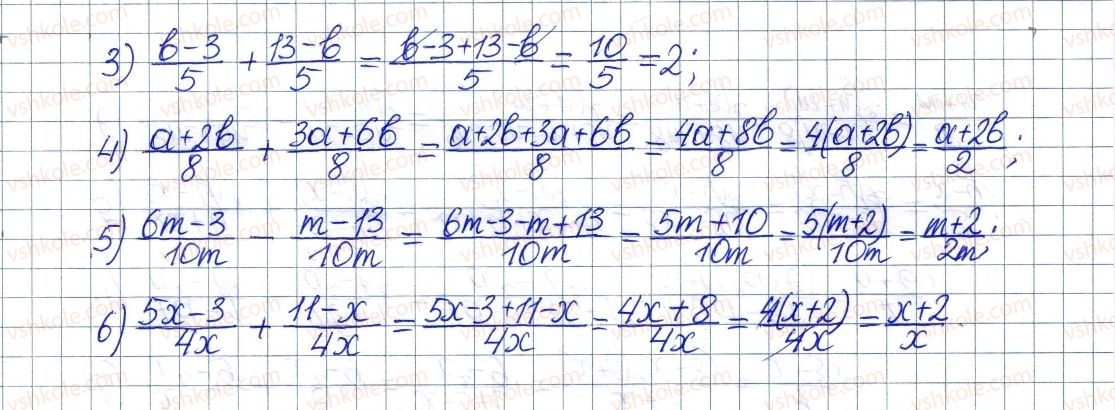 3) (в-3)/5 + (13-в)/5 = (в-3+13-в)/5 = 10/5 = 2;
4) (a+2в)/8 + (3a+6в)/8 = (a+2в+3a+6в)/8 = (4a+8в)/8 = 4(a+2в)/8 = (a+2в)/2;
5) (6m-3)/10m - (m-13)/10m = (6m-3-m+13)/10m = (5m+10)/10m = 5(m+2)/10m = (m+2)/2m;
6) (5x-3)/4x + (11-x)/4x = (5x-3+11-x)/4x = (4x+8)/4x = 4(x+2)/4x = (x+2)/x.